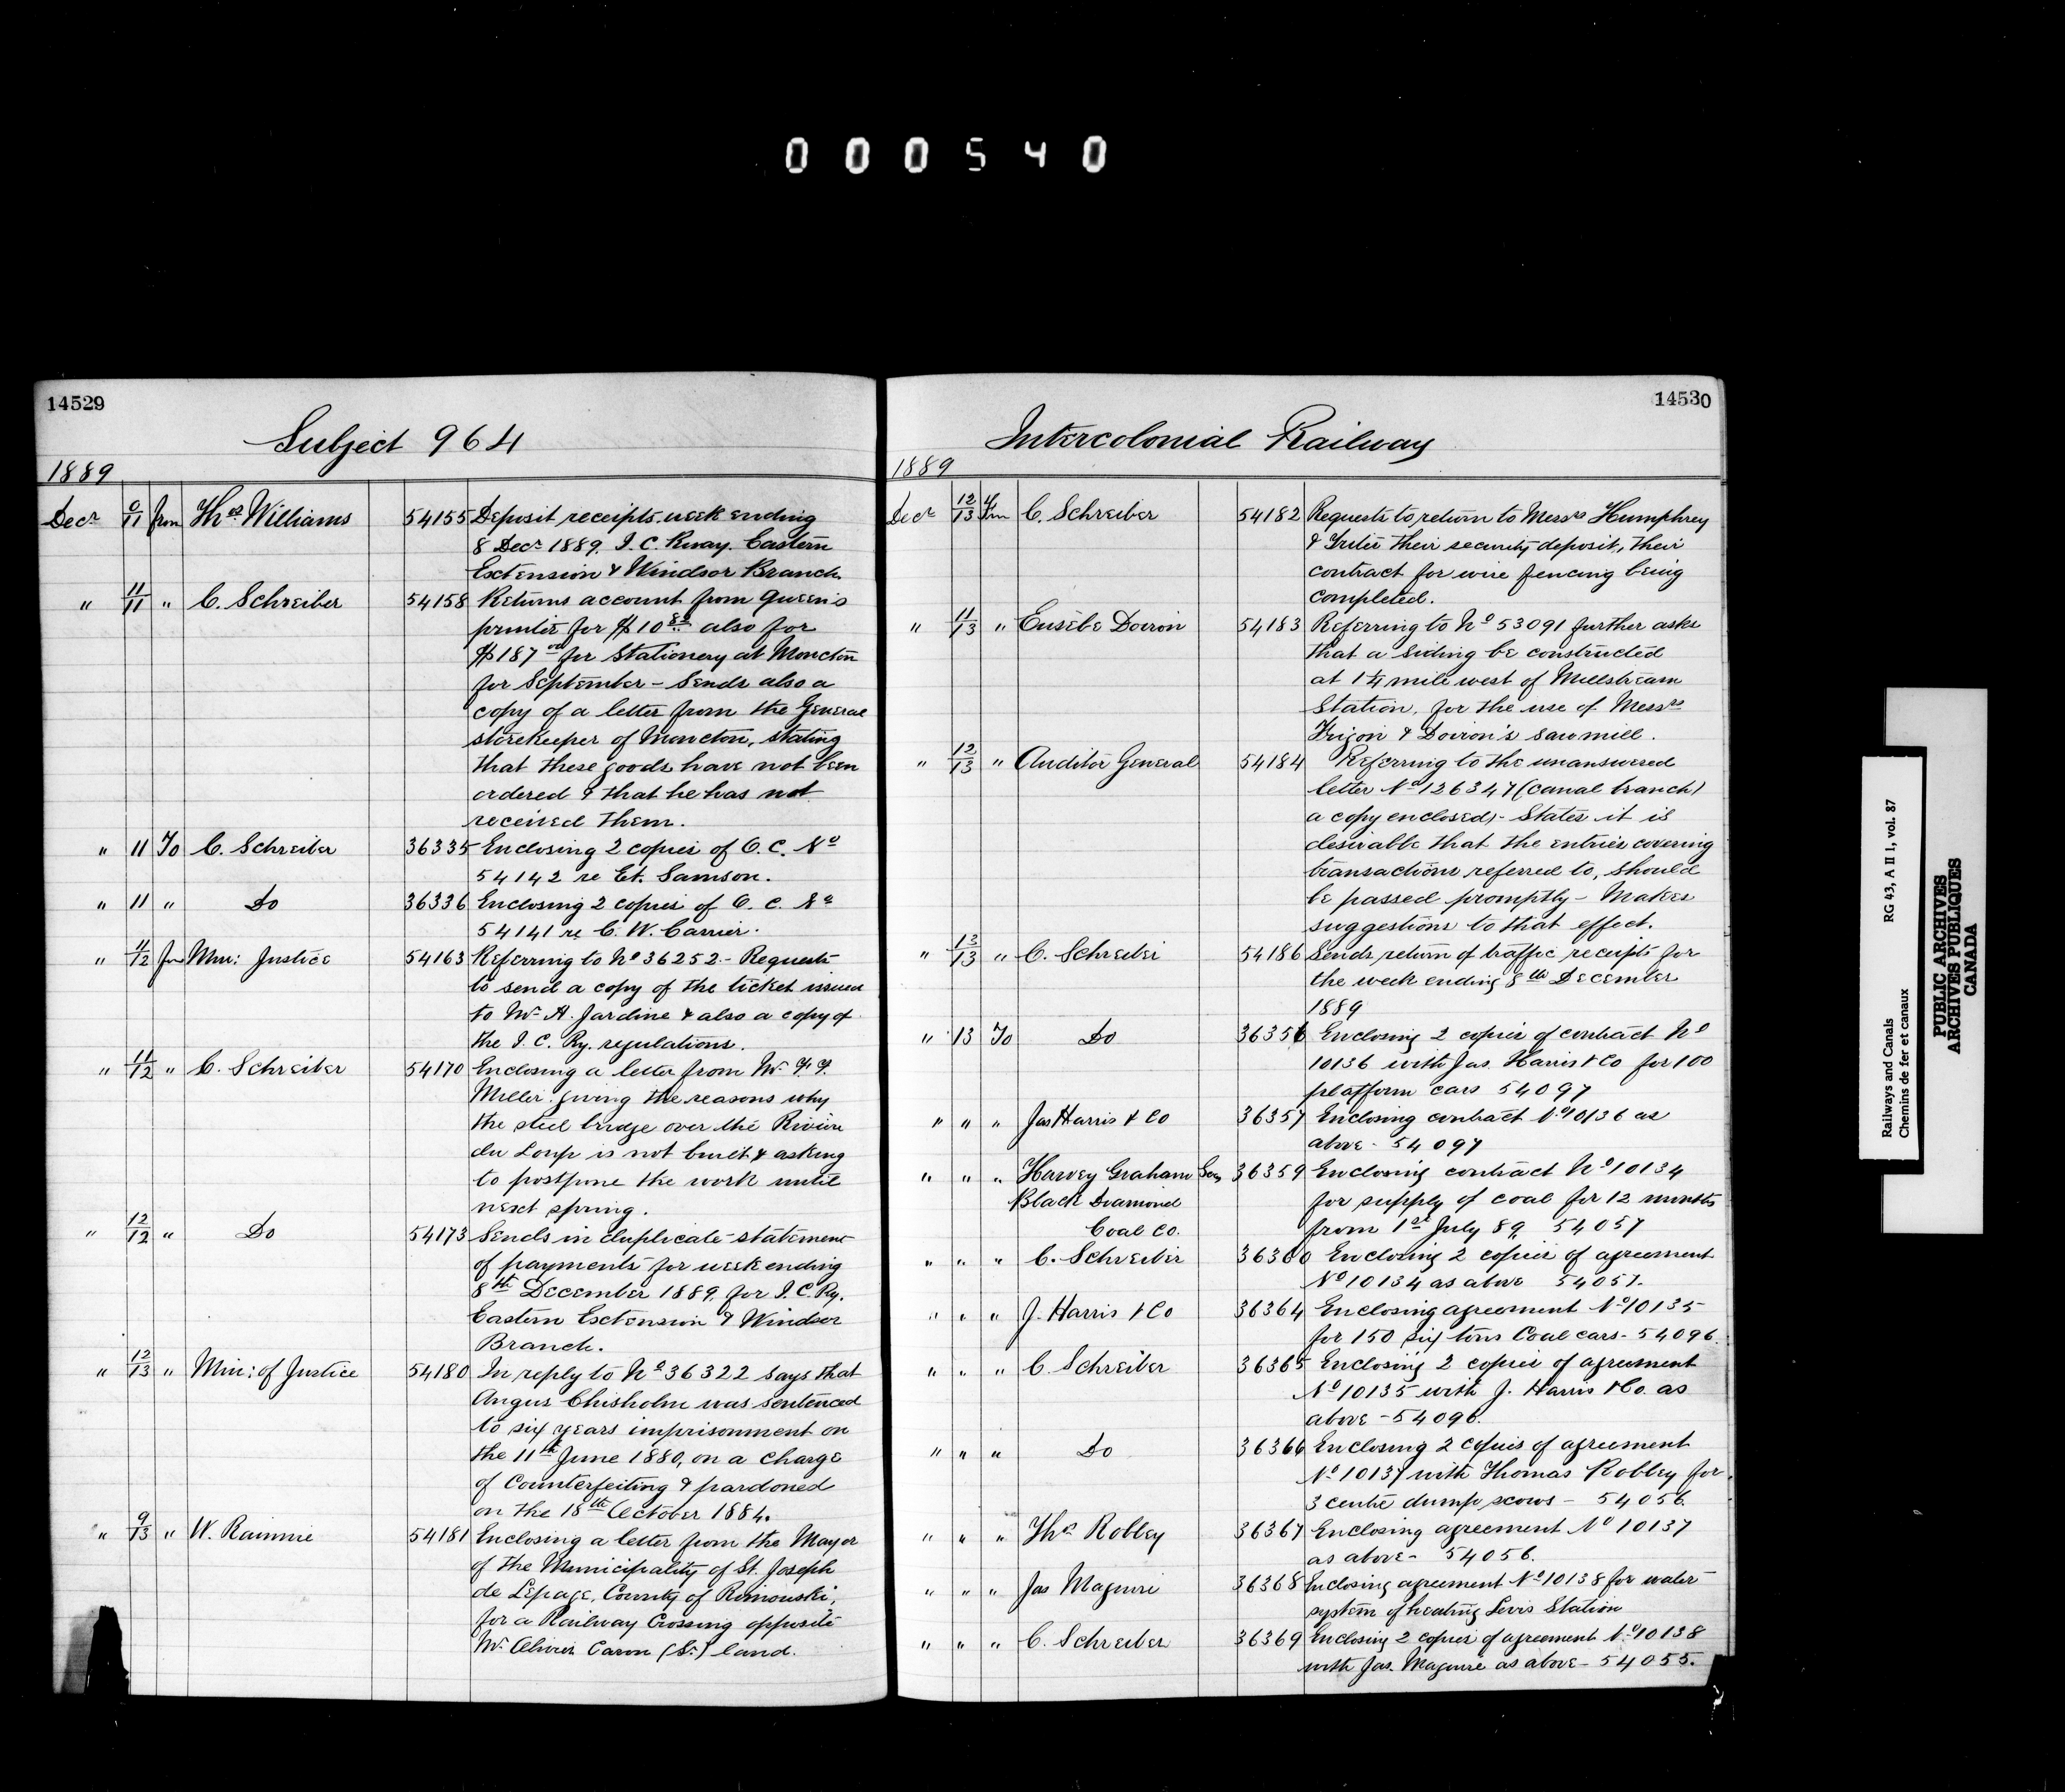 000540
14529
Subject 964
1889
Decr 9/11 from Thos Williams 54155 Deposit receipts week ending
8 Decr 1889. I. C. Rway. Eastern
Extension & Windsor Branch.
" 11/11 " C. Schreiber 54158 Returns account from Queen's
printer for $10 also for
$187 00 for Stationery at Moncton
for September - Sends also a
copy of a letter from the General
storekeeper of Moncton, stating
that these goods have not been
ordered & that he has not
received them.
" 11 To C. Schreiber 36335 Enclosing 2 copies of O. C. No
54142 re Et. Samson.
" 11 " Do 36336 Enclosing 2 copies of O. C. No
54141 re C. W. Carrier.
" 11/12 from Min: Justice 54163 Referring to No 36252 - Requests
to send a copy of the ticket issued
to Mr A. Jardine & also a copy of
the I. C. Ry. regulations.
" 11/12 " C. Schreiber 54170 Enclosing a letter from Mr
Miller giving the reasons why
the steel bridge over the Rivière
du Loup is not built & asking
to postpone the work until
next spring.
" 12/12 " Do 54173 Sends in duplicate statement
of payments for week ending
8th December 1889. for I. C. Ry.
Eastern Extension & Windsor
Branch.
" 12/13 " Min: of Justice 54180 In reply to No 36322 says that
Angus Chisholm was sentenced
to six years imprisonment on
the 11th June 1880, on a charge
of Counterfeiting & pardoned
on the 18th October 1884.
" 9/13 " W. Rainnie 54181 Enclosing a letter from the Mayor
of the Municipality of St. Joseph
de Lepage, County of Rimouski,
for a Railway Crossing opposite
Mr Olivier Caron (Sr.) land.
14530
Intercolonial Railway
1889
Decr 12/13 Fm C. Schreiber 54182 Requests to return to Messrs Humphrey
& their security deposit, their
contract for wire fencing being
completed.
" 11/13 " Eusèbe Doiron 54183 Referring to No 53091 further asks
that a siding be constructed
at 1 1/4 mile west of Millstream
Station, for the use of Messrs
& Doiron's sawmill.
" 12/13 " Auditor General 54184 Referring to the unanswered
letter No 126347 (canal branch)
a copy enclosed - States it is
desirable that the entries covering
transactions referred to, should
be passed promptly - Makes
suggestions to that effect.
" 13/13 " C. Schreiber 54186 Sends return of traffic receipts for
the week ending 8th December
1889
" 13 To Do 36356 Enclosing 2 copies of contract No
10136 with Jas. Harris & Co for 100
platform cars 54097
" " " Jas Harris & Co 36357 Enclosing contract No 10136 as
above - 54097
" " " Harvey Graham Secy 36359 Enclosing contract No 10134
Black Diamond for supply of coal for 12 months
Coal Co. from 1st July 89. 54057
" " " C. Schreiber 36360 Enclosing 2 copies of agreement
No 10134 as above 54057.
" " " J. Harris & Co 36364 Enclosing agreement No 10135
for 150 six tons Coal cars - 54096.
" " " C Schreiber 36365 Enclosing 2 copies of agreement
No 10135 with J. Harris & Co. as
above - 54096.
" " " Do 36366 Enclosing 2 copies of agreement
No 10137 with Thomas Robley for
3 centre dump scows - 54056
" " " Thos Robley 36367 Enclosing agreement No 10137
as above - 54056.
" " " Jas Maguire 36368 Enclosing agreement No 10138 for water
system of heating Levis Station
" " " C. Schreiber 36369 Enclosing 2 copies of agreement No 10138
with Jas. Maguire as above - 54055.
Railways and Canals RG 43, A II 1, vol. 87
Chemins de fer et canaux
PUBLIC ARCHIVES
ARCHIVES PUBLIQUES
CANADA